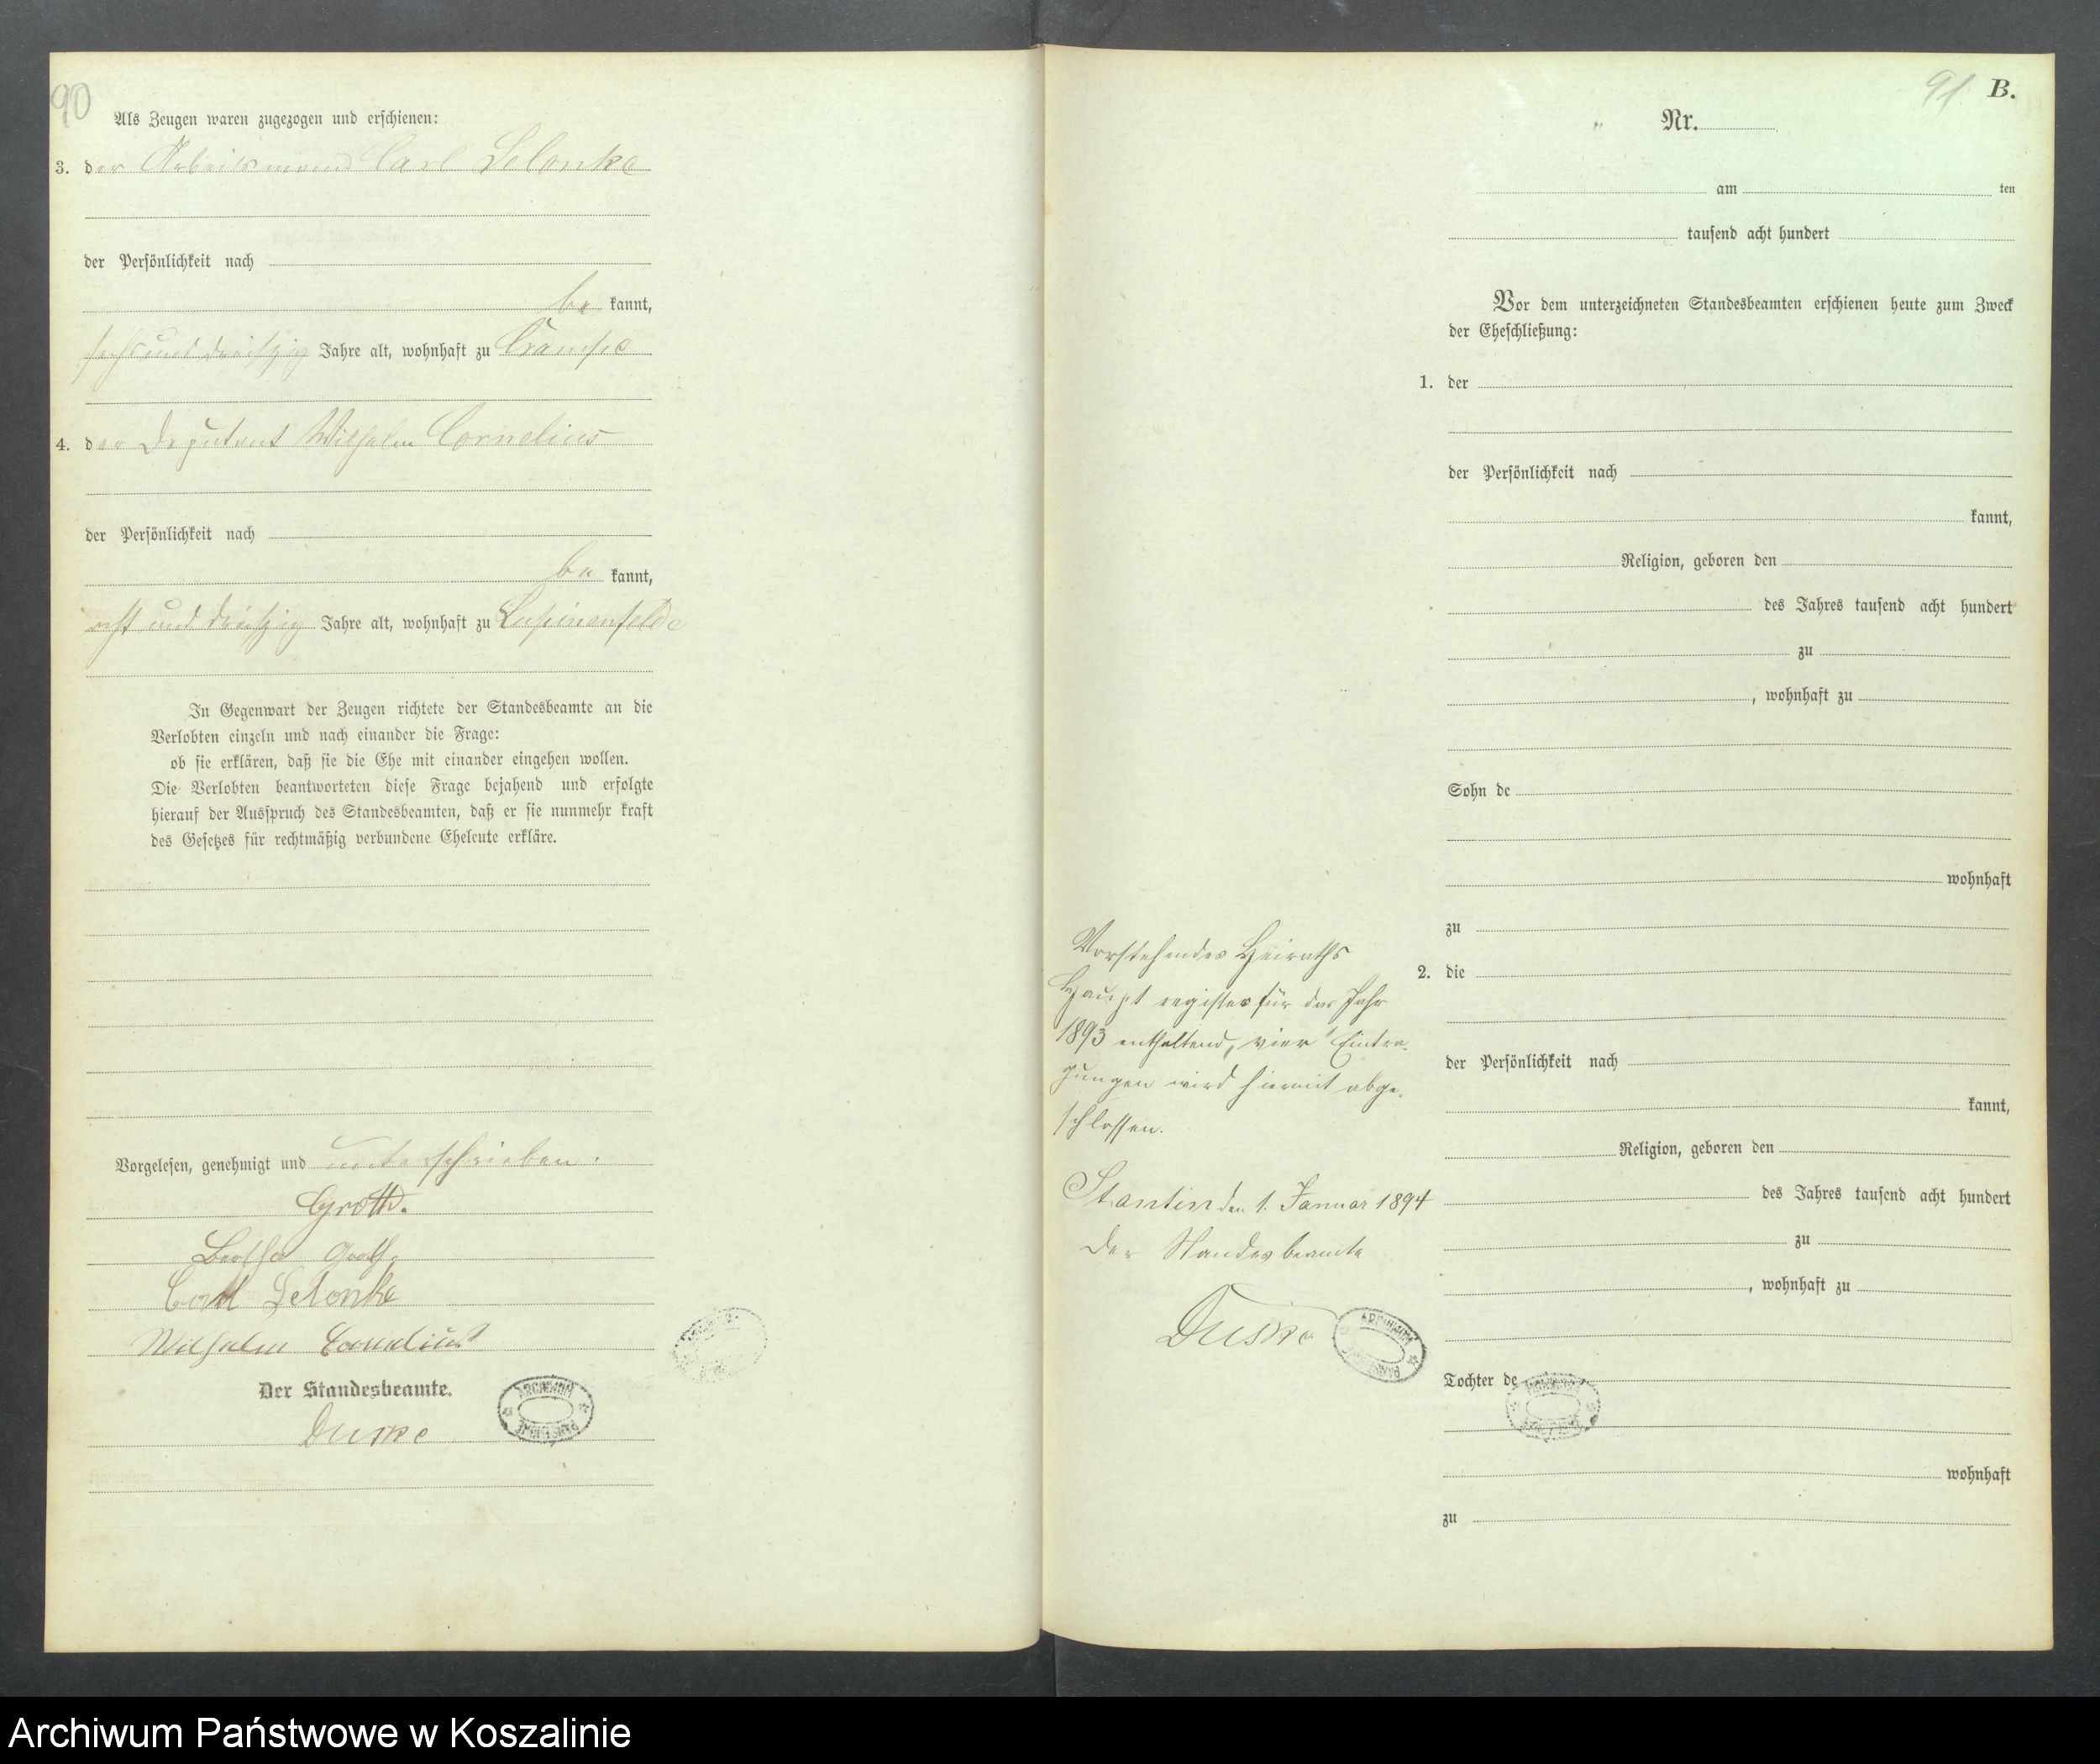 90
Als Zeugen waren zugezogen und erschienen:
3. der Arbeitsmann Carl Selonke
der Persönlichkeit nach
be kannt,
sechs und dreißig Jahre alt, wohnhaft zu Crampe
4. der Deputant Wilhelm Cornelius
der Persönlichkeit nach
be kannt,
acht und dreißig Jahre alt, wohnhaft zu Lupinenfelde
In Gegenwart der Zeugen richtete der Standesbeamte an die
Verlobten einzeln und nach einander die Frage:
ob sie erklären, daß sie die Ehe mit einander eingehen wollen.
Die Verlobten beantworteten diese Frage bejahend und erfolgte
hierauf der Ausspruch des Standesbeamten, daß er sie nunmehr kraft
des Gesetzes für rechtmäßig verbundene Eheleute erkläre.
Vorgelesen, genehmigt und unterschrieben.
Groth.
Bertha Groth
Carl Selonke
Wilhelm Cornelius
Der Standesbeamte.
Duske
ARCHIWUM
PAŃSTWOWE
91 B.
Nr.
am ten
tausend acht hundert
Vor dem unterzeichneten Standesbeamten erschienen heute zum Zweck
der Eheschließung:
1. der
der Persönlichkeit nach
kannt,
Religion, geboren den
des Jahres tausend acht hundert
zu
, wohnhaft zu
Sohn de
wohnhaft
zu
2. die
der Persönlichkeit nach
kannt,
Religion, geboren den
des Jahres tausend acht hundert
zu
, wohnhaft zu
Tochter de
wohnhaft
zu
Vorstehendes Heiraths
Haupt register für das Jahr
1893 enthaltend, vier Eintra-
gungen wird hiermit abge-
schlossen.
Stantin den 1. Januar 1894
Der Standesbeamte
Duske
ARCHIWUM
PAŃSTWOWE
Archiwum Państwowe w Koszalinie